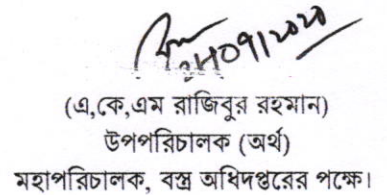 (এ,কে,এম রাজিবুর রহমান)
উপপরিচালক (অর্থ)
মহাপরিচালক, বস্ত্র অধিদপ্তরের পক্ষে।